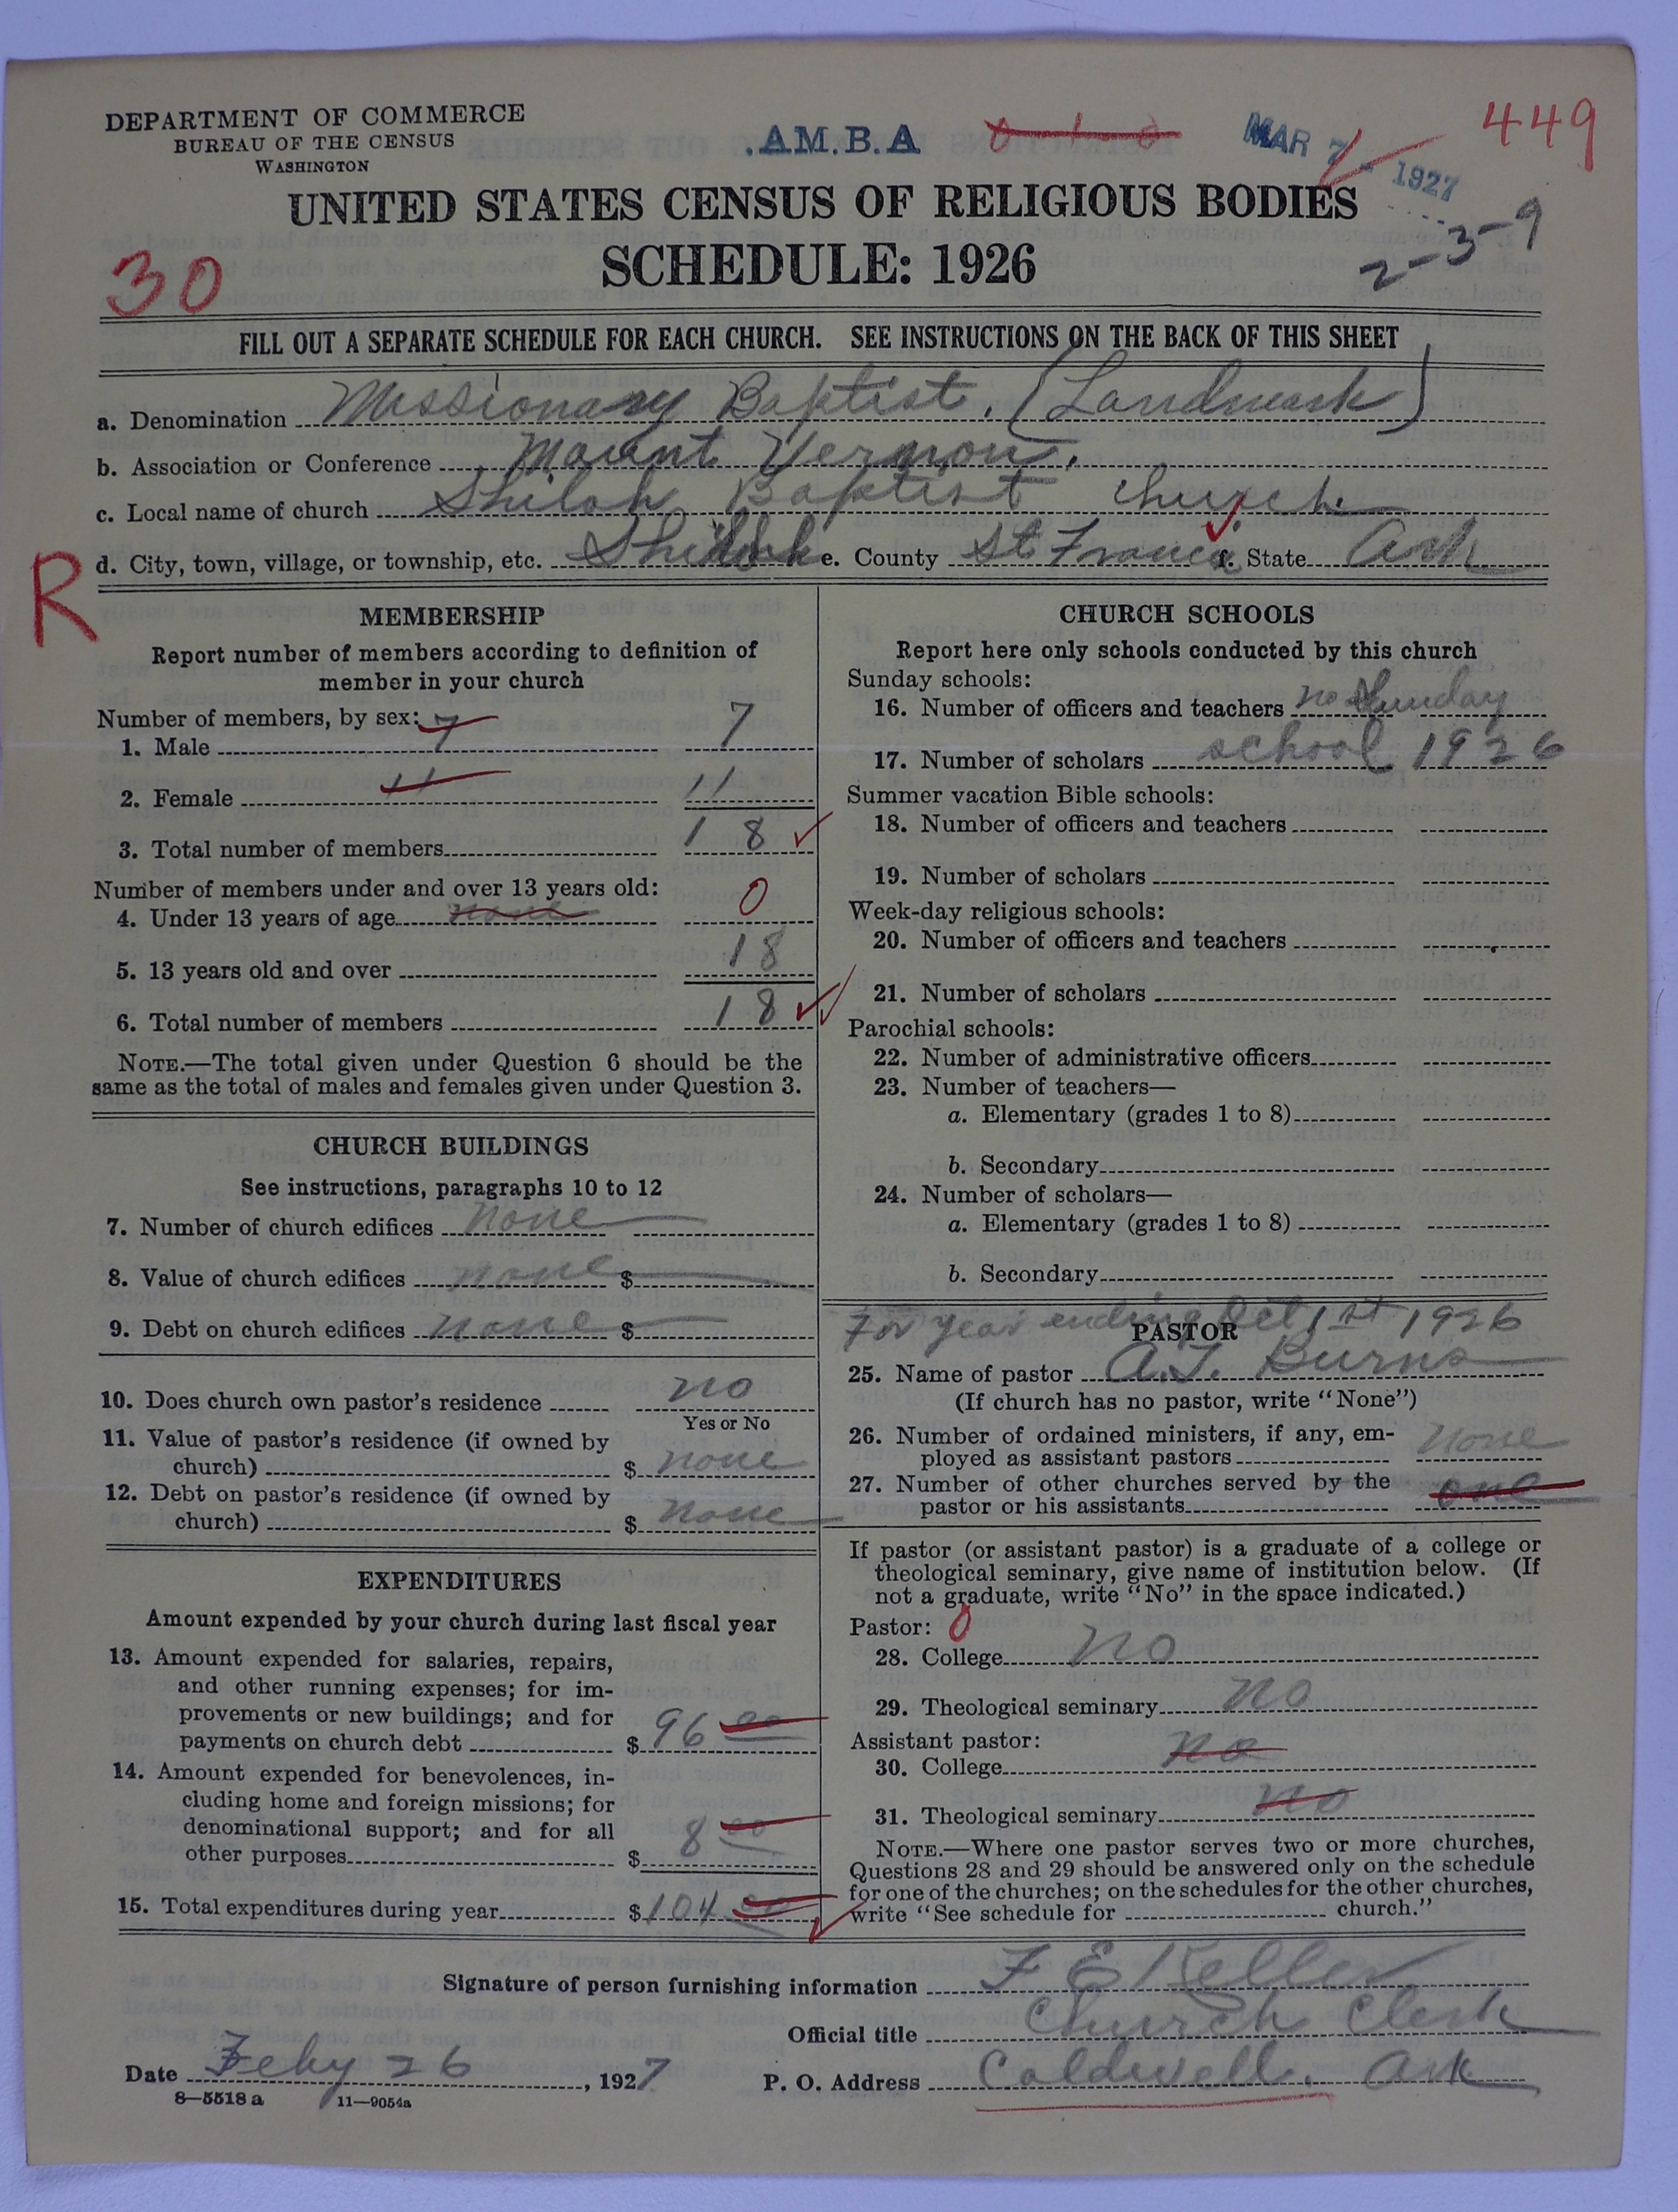 DEPARTMENT OF COMMERCE
BUREAU OF THE CENSUS
WASHINGTON
.AM.B.A
MAR 7 - 1927
449
UNITED STATES CENSUS OF RELIGIOUS BODIES
SCHEDULE: 1926
2-3-9
30
FILL OUT A SEPARATE SCHEDULE FOR EACH CHURCH. SEE INSTRUCTIONS ON THE BACK OF THIS SHEET
a. Denomination Missionary Baptist. (Landmark)
b. Association or Conference Mount Vernon.
c. Local name of church Shiloh Baptist church
d. City, town, village, or township, etc. Shiloh e. County St Francis f. State Ark
R
MEMBERSHIP
Report number of members according to definition of
member in your church
Number of members, by sex: 7
1. Male 7
2. Female 11 11
3. Total number of members 18
Number of members under and over 13 years old:
4. Under 13 years of age none 0
5. 13 years old and over 18
6. Total number of members 18
NOTE.—The total given under Question 6 should be the
same as the total of males and females given under Question 3.
CHURCH BUILDINGS
See instructions, paragraphs 10 to 12
7. Number of church edifices none
8. Value of church edifices none $
9. Debt on church edifices none $
10. Does church own pastor's residence no
Yes or No
11. Value of pastor's residence (if owned by
church) $ none
12. Debt on pastor's residence (if owned by
church) $ none
EXPENDITURES
Amount expended by your church during last fiscal year
13. Amount expended for salaries, repairs,
and other running expenses; for im-
provements or new buildings; and for
payments on church debt $ 96 00
14. Amount expended for benevolences, in-
cluding home and foreign missions; for
denominational support; and for all
other purposes $ 8 00
15. Total expenditures during year $ 104 00
CHURCH SCHOOLS
Report here only schools conducted by this church
Sunday schools:
16. Number of officers and teachers no Sunday
17. Number of scholars school 1926
Summer vacation Bible schools:
18. Number of officers and teachers
19. Number of scholars
Week-day religious schools:
20. Number of officers and teachers
21. Number of scholars
Parochial schools:
22. Number of administrative officers
23. Number of teachers—
a. Elementary (grades 1 to 8)
b. Secondary
24. Number of scholars—
a. Elementary (grades 1 to 8)
b. Secondary
For year ending Oct 1st 1926
PASTOR
25. Name of pastor A.J. Burns
(If church has no pastor, write "None")
26. Number of ordained ministers, if any, em-
ployed as assistant pastors none
27. Number of other churches served by the
pastor or his assistants one
If pastor (or assistant pastor) is a graduate of a college or
theological seminary, give name of institution below. (If
not a graduate, write "No" in the space indicated.)
Pastor: 0
28. College no
29. Theological seminary no
Assistant pastor:
30. College no
31. Theological seminary no
NOTE.—Where one pastor serves two or more churches,
Questions 28 and 29 should be answered only on the schedule
for one of the churches; on the schedules for the other churches,
write "See schedule for church."
Signature of person furnishing information F E Keller
Official title Church Clerk
Date Feby 26, 1927 P. O. Address Caldwell, Ark
8—5518 a 11—9054a